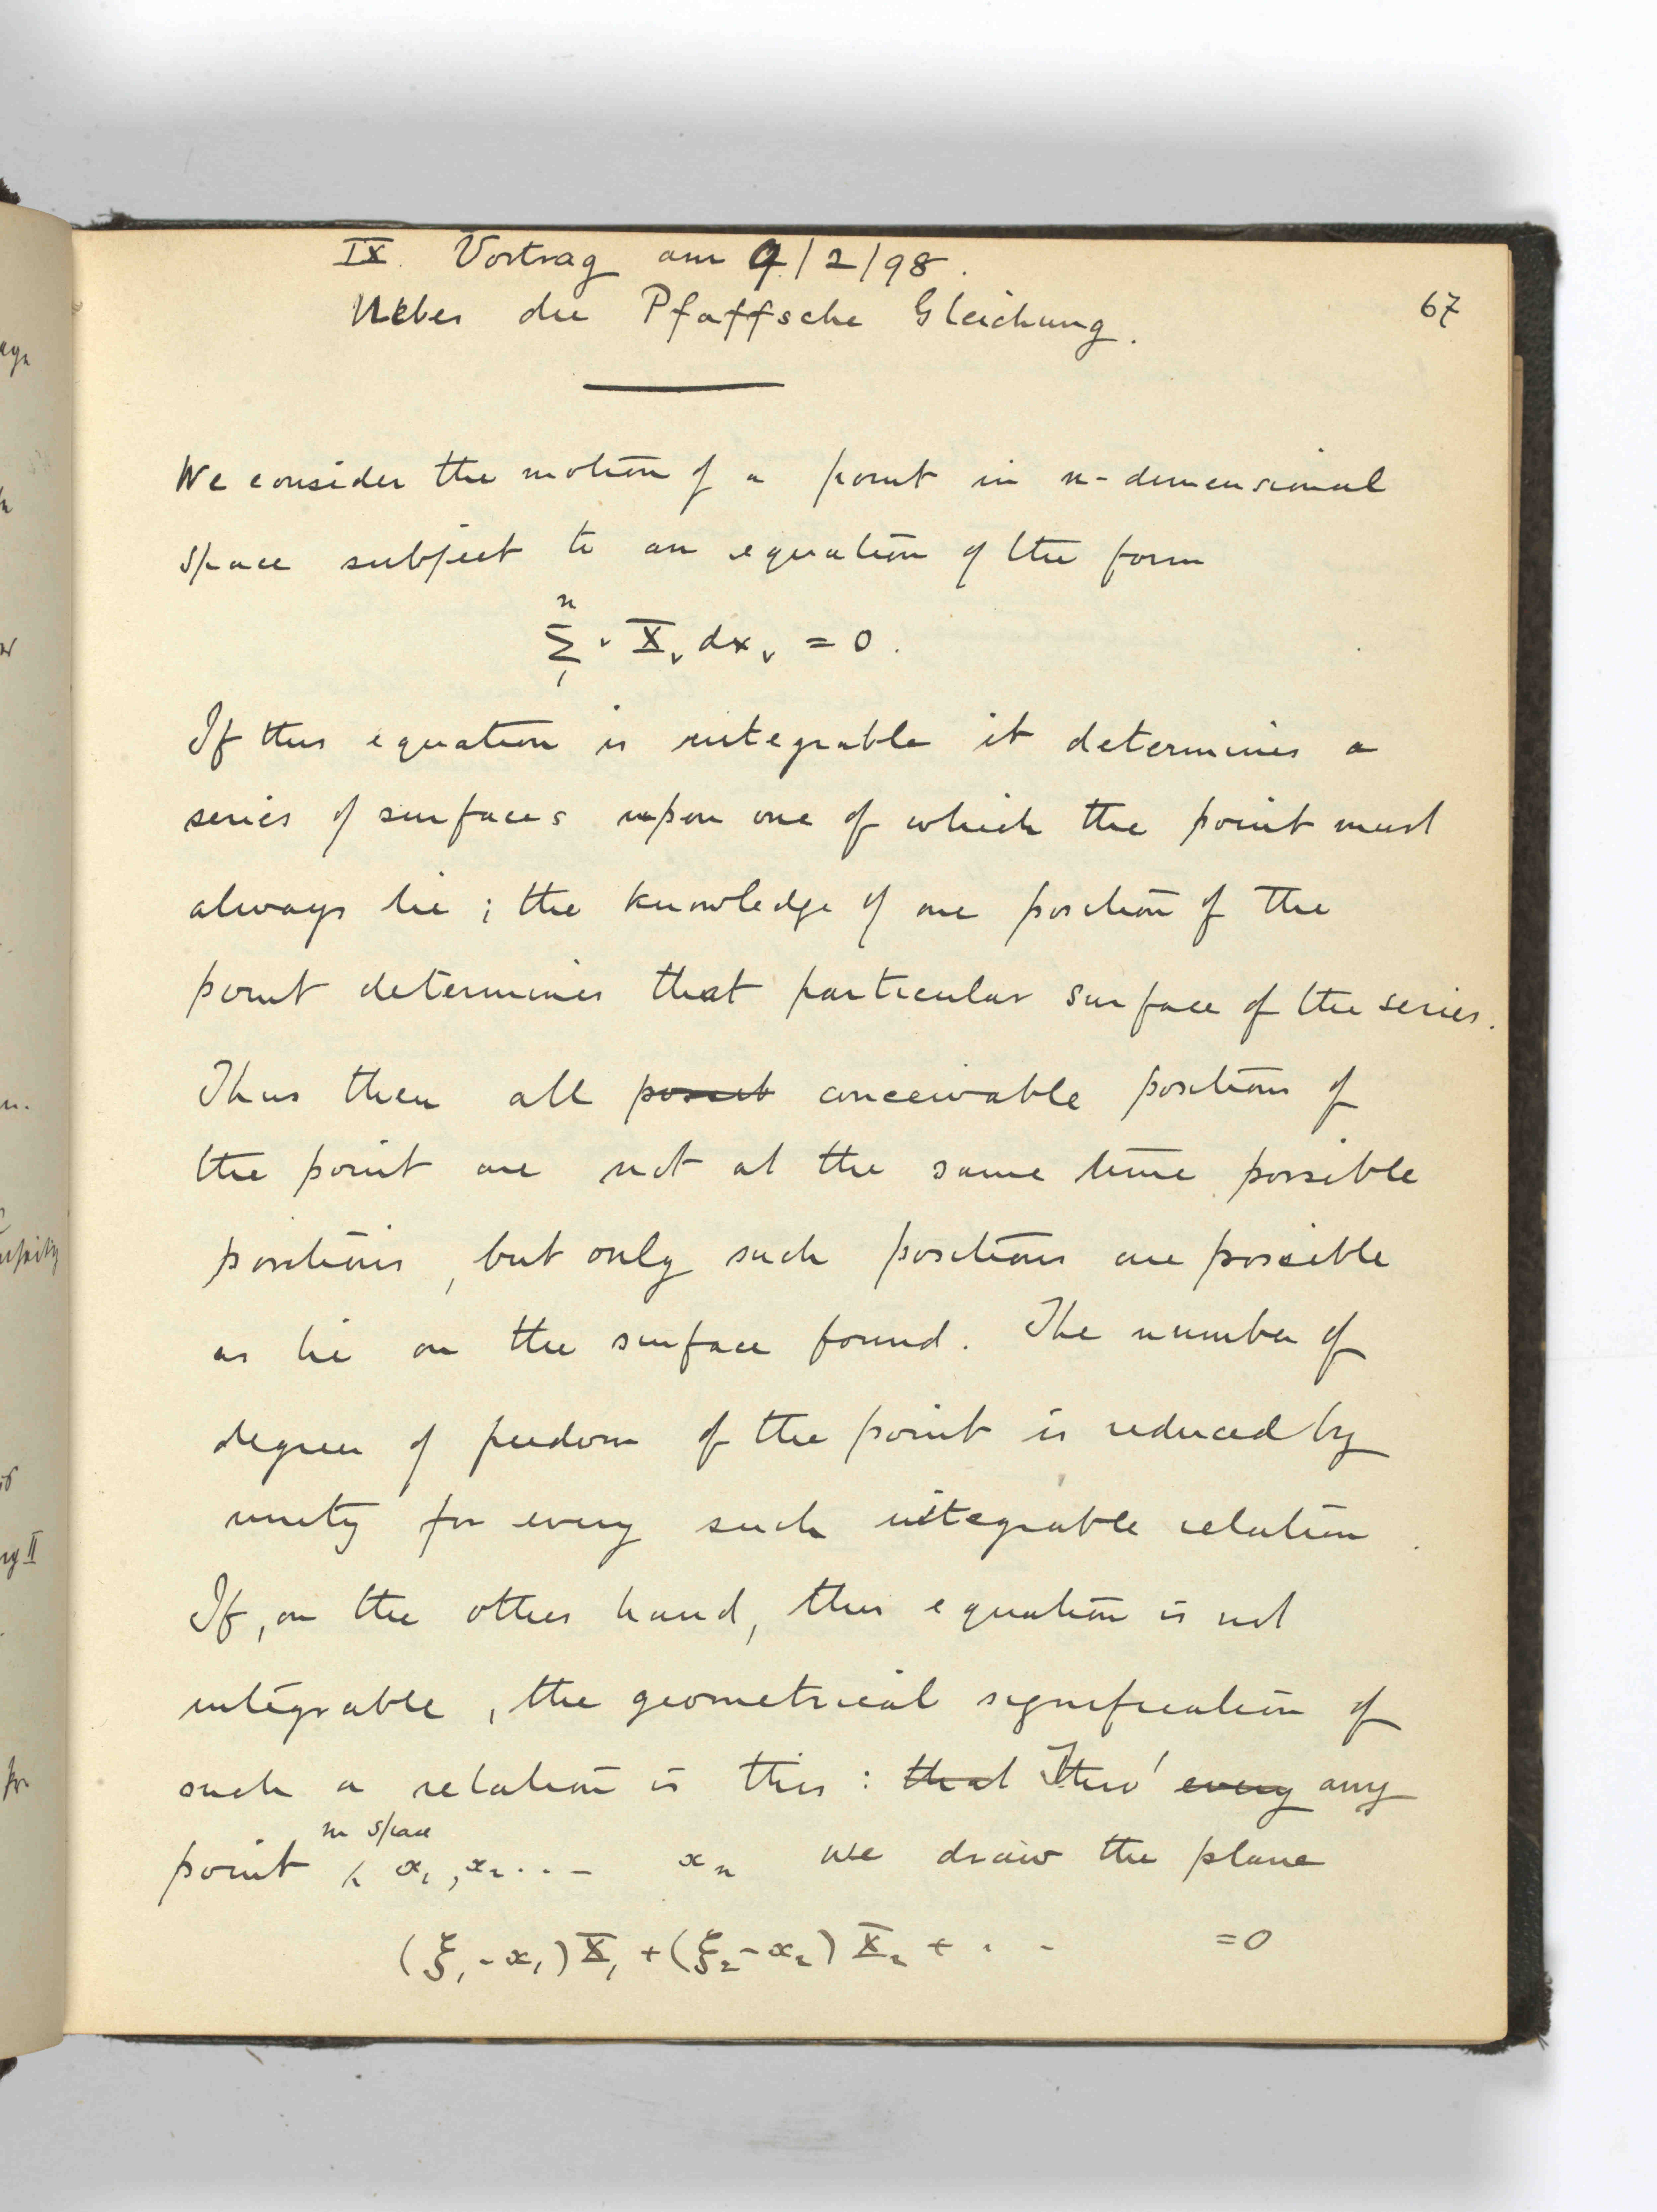 IX. Vortrag am 9/2/98.
Ueber die Pfaffsche Gleichung.
67
We consider the motion of a point in n-dimensional
space subject to an equation of the form
n∑1 ν X̅ν dxν = 0.
If this equation is integrable it determines a
series of surfaces upon one of which the point must
always lie; the knowledge of one position of the
point determines that particular surface of the series.
Thus then all conceivable positions of
the point are not at the same time possible
positions, but only such positions are possible
as lie on the surface found. The number of
degrees of freedom of the point is reduced by
unity for every such integrable relation.
If, on the other hand, this equation is not
integrable, the geometrical signification of
such a relation is this: that Thro' every any
in space
point x1, x2 . . . xn we draw the plane
(ξ1 - x1) X1 + (ξ2 - x2) X2 + . . = 0